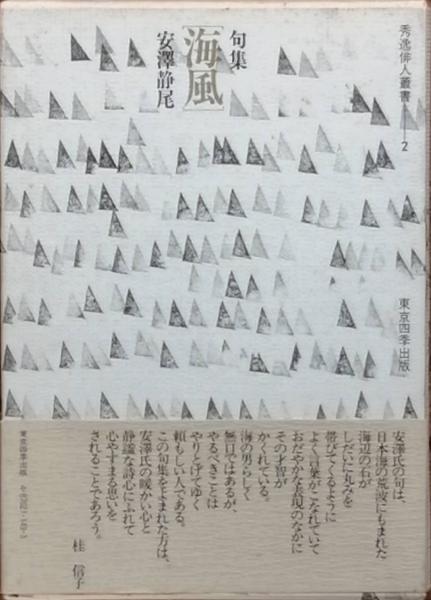 秀逸俳人叢書――2
句集
[海風]
安澤静尾
東京四季出版
安澤氏の句は、
日本海の荒波にもまれた
海辺の石が
しだいに丸みを
帯びてくるように
よく言葉がこなれていて
おだやかな表現のなかに
その才智が
かくれている。
海の男らしく
無口ではあるが、
やるべきことは
やりとげてゆく
頼もしい人である。
この句集をよまれた方は、
安澤氏の暖かい心と
静謐な詩心にふれて
心やすまる思いを
されることであろう。
桂 信子
東京四季出版